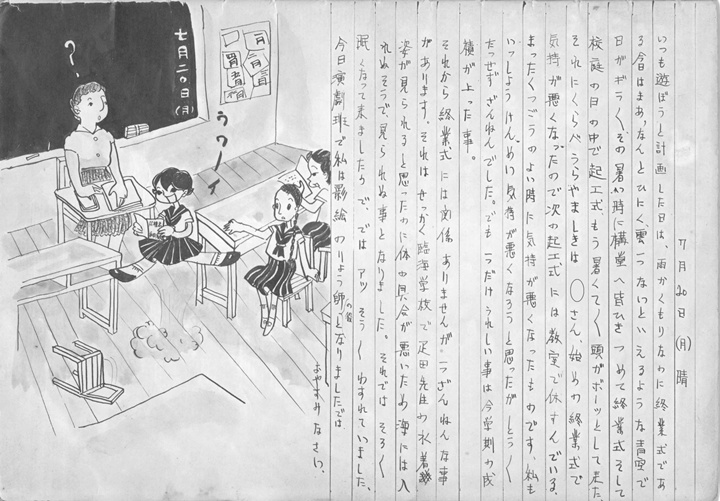 七月二〇日(月)
?
うわーイ
7月20日(月)晴
いつも遊ぼうと計画した日は、雨かくもりなのに終業式であ
る今日はまあ、なんとひにく、雲一つないといえるような青空で
日がギラ〱、その暑い時に構堂へ皆ひきつめて終業式そして
校庭の日の中で起工式もう暑くて〱頭がボーッとして来た
それにくらべうらやましきは〇さん、始めの終業式で
気持が悪くなったので次の起工式には教室で休すんでいる。
まったくつごうのよい時に気持が悪くなったものです。私も
いっしょうけんめい気持が悪くなろうと思ったがとう〱
だっせず、ざんねんでした。でも一つだけうれしい事は今学期の成
積が上った事。
それから終業式には関係ありませんが一つざんねんな事
があります。それはせっかく臨海学校で疋田先生の水着
姿が見られると思ったのに体の具合が悪いため海には入
れぬそうで、見られぬ事となりました。それではそろ〱
眠くなって来ましたので、ではアッそう〱わすれていました。
今日演劇班で私は影絵のりょう師の役となりましたでは
おやすみなさい、